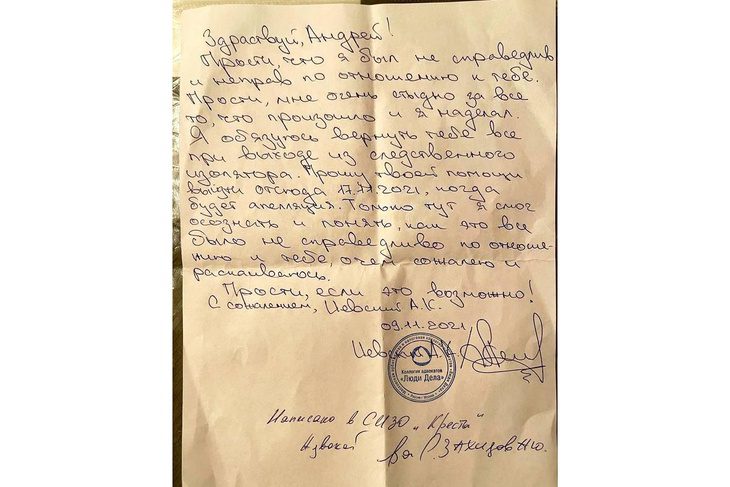 Здраствуй, Андрей!
Прости, что я был не справедлив
и неправ по отношению к тебе.
Прости, мне очень стыдно за все
то, что произошло и я наделал.
Я обязуюсь вернуть тебе все
при выходе из следственного
изолятора. Прошу твоей помощи
выйти отсюда 17.11.2021, когда
будет апелляция. Только тут я смог
осознать и понять, как это все
было не справедливо по отноше-
нию к тебе, о чем сожалею и
раскаиваюсь.
Прости, если это возможно!
С сожалением, Цевский А.К.
09.11.2021
Цевский А.К.
Коллегия адвокатов
«Люди Дела»
Написано в СИЗО „Кресты"
Адвокат